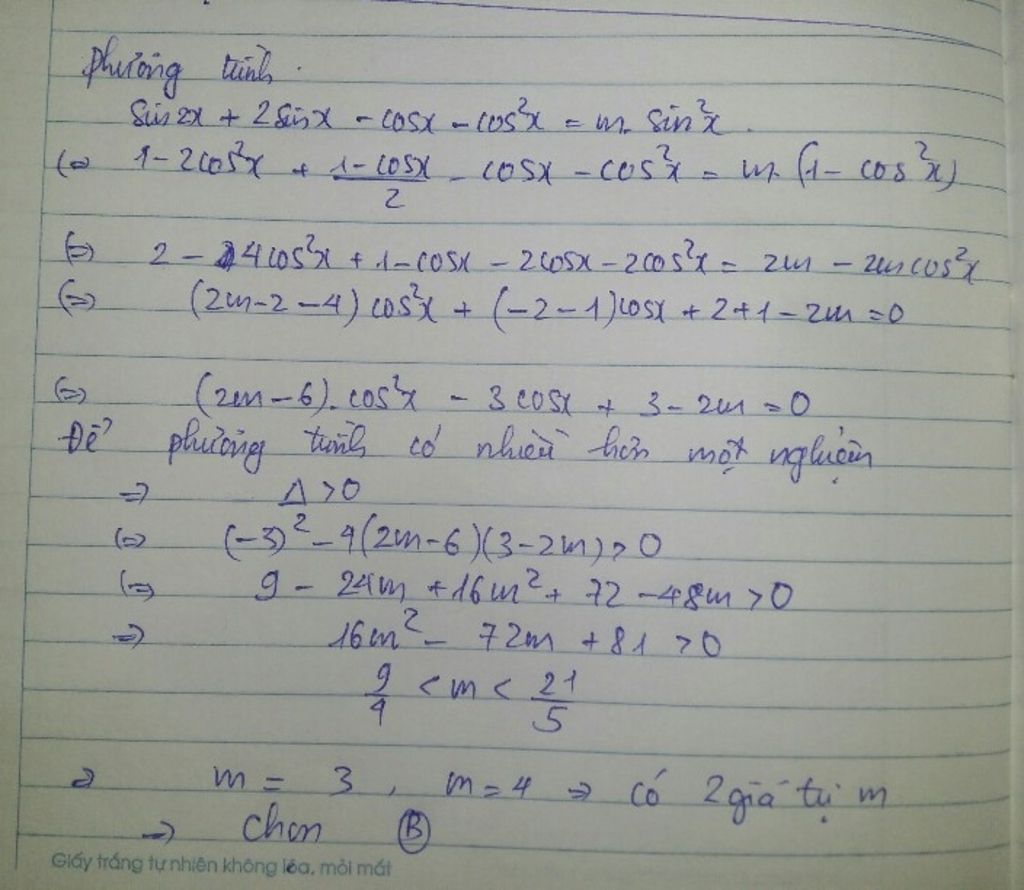 phương trình.
sin2x + 2sinx - cosx - cos²x = m. sin²x.
(=> 1-2cos²x + \frac{1-cosx}{2} - cosx - cos²x = m. (1- cos²x)
(=> 2 - 4cos²x + 1-cosx - 2cosx - 2cos²x = 2m - 2mcos²x
(=> (2m-2-4) cos²x + (-2-1)cosx + 2+1-2m = 0
(=> (2m-6). cos²x - 3cosx + 3-2m = 0
Để phương trình có nhiều hơn một nghiệm
=> Δ > 0
(=> (-3)² - 4(2m-6)(3-2m) > 0
(=> 9 - 24m + 16m² + 72 - 48m > 0
=> 16m² - 72m + 81 > 0
\frac{9}{4} < m < \frac{21}{5}
=> m = 3, m = 4 => có 2 giá trị m
=> Chọn Ⓑ
Giấy trắng tự nhiên không lóa, mỏi mắt